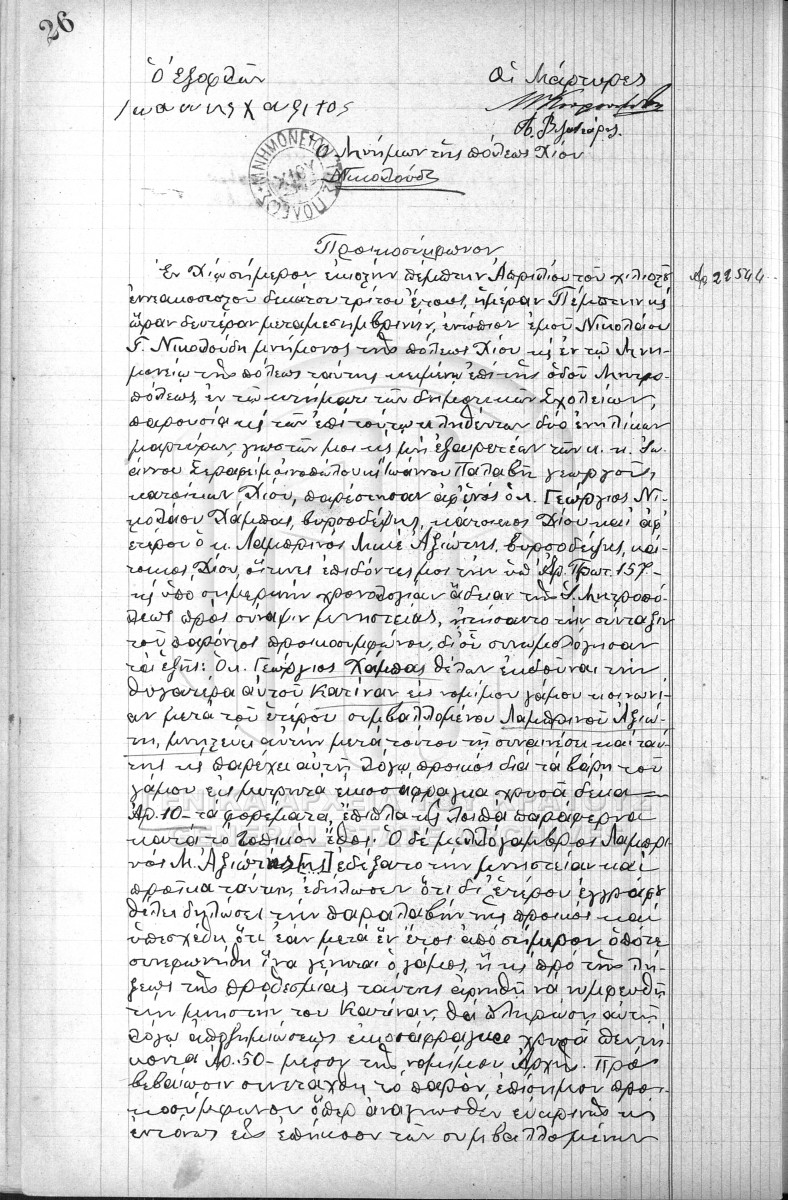 26
Ὁ Ἐξοφλῶν
Οἱ Μάρτυρες
Ιωαννης Χαγιτος
Ὁ Μνήμων τῆς πόλεως Χίου
ΜΝΗΜΟΝΕΙΟΝ ΤΗΣ ΠΟΛΕΩΣ ΧΙΟΥ
Νικολούδης
Προικοσύμφωνον
Ἐν Χίῳ σήμερον εἰκοστὴν πέμπτην Ἀπριλίου τοῦ χιλιοστοῦ
Αρ 22544
ἐννεακοσιοστοῦ δεκάτου τρίτου ἔτους, ἡμέραν Πέμπτην κ
ὥραν δευτέραν μεταμεσημβρινην, ἐνώπιον ἐμοῦ Νικολάου
Γ. Νικολούδη μνήμονος τῆς πόλεως Χίου κ ἐν τῷ Μνη-
μονείῳ τῆς πόλεως ταύτης κειμένῳ ἐπὶ τῆς ὁδοῦ Μητρο-
πόλεως, ἐν τῷ κτήματι τῶν δημοτικῶν Σχολείων,
παρουσίᾳ κ τῶν ἐπὶ τούτῳ κληθέντων δύο ἐνηλίκων
μαρτύρων, γνωστῶν μοι κ μὴ ἐξαιρετέων τῶν κ. κ. Ἰω-
άννου Σεραφεὶμ κ Ἰωάννου Παλαβῆ γεωργοῦ,
κατοίκων Χίου, παρέστησαν ἀφ' ἑνὸς ὁ κ. Γεώργιος Νι-
κολάου Χάμπας, βυρσοδέψης, κάτοικος Χίου καὶ ἀφ'
ἑτέρου ὁ κ. Λαμπρινὸς Μικὲ Ἀξιώτης, βυρσοδέψης, κά-
τοικος Χίου, οἵτινες ἐπιδόντες μοι τὴν ὑπ' Ἀρ. Πρωτ. 157-
κ ὑπὸ σημερινὴν χρονολογίαν ἄδειαν τῆς Ἱ. Μητροπό-
λεως πρὸς σύναψιν μνηστείας, ᾐτήσαντο τὴν σύνταξιν
τοῦ παρόντος προικοσυμφώνου, δι' οὗ συνωμολόγησαν
τὰ ἑξῆς: Ὁ κ. Γεώργιος Χάμπας θέλων ἐκδοῦναι τὴν
θυγατέρα αὐτοῦ Κατίναν εἰς νομίμου γάμου κοινωνί-
αν μετὰ τοῦ ἑτέρου συμβαλλομένου Λαμπρινοῦ Ἀξιώ-
τη, μνηστεύει αὐτὴν μετὰ τούτου τῇ συναινέσει καὶ ταύ-
της κ παρέχει αὐτῇ λόγῳ προικὸς διὰ τὰ βάρη τοῦ
γάμου εἰς μετρητὰ εἰκοσάφραγκα χρυσᾶ δέκα
Ἀρ. 10- τὰ φορέματα, ἔπιπλα κ λοιπὰ παράφερνα
κατὰ τὸ τοπικὸν ἔθος. Ὁ δὲ μελλόγαμβρος Λαμπρι-
νὸς Μ. Ἀξιώτης [της] ἐδέξατο τὴν μνηστείαν καὶ
προῖκα ταύτην, ἐδήλωσεν ὅτι δι' ἑτέρου ἐγγράφου
θέλει δηλώσει τὴν παραλαβὴν τῆς προικὸς καὶ
ὑπεσχέθη ὅτι ἐὰν μετὰ ἓν ἔτος ἀπὸ σήμερον ὁπότε
συνεφωνήθη ἵνα γένηται ὁ γάμος, ἢ κ πρὸ τῆς λή-
ξεως τῆς προθεσμίας ταύτης ἀρνηθῇ νὰ νυμφευθῇ
τὴν μνηστήν του Κατίναν, θὰ πληρώσῃ αὐτῇ
λόγῳ ἀποζημιώσεως εἰκοσάφραγκα χρυσᾶ πεντή-
κοντα Ἀρ. 50- μέσον τῆς νομίμου Ἀρχῆς. Πρὸς
βεβαίωσιν συνετάχθη τὸ παρὸν ἐπίσημον προι-
κοσύμφωνον ὅπερ ἀναγνωσθὲν εὐκρινῶς κ
ἐντόνως εἰς ἐπήκοον τῶν συμβαλλομένων
ΓΕΝΙΚΑ ΑΡΧΕΙΑ ΤΟΥ ΚΡΑΤΟΥΣ
GENERAL STATE ARCHIVES